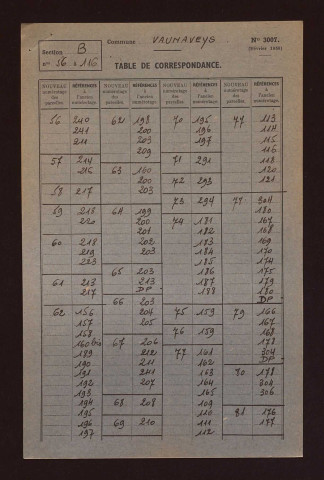 Section B
nos 56 à 116
Commune VAUNAVEYS
N° 3007.
TABLE DE CORRESPONDANCE.
NOUVEAU numérotage des parcelles. RÉFÉRENCES à l'ancien numérotage.
NOUVEAU numérotage des parcelles. RÉFÉRENCES à l'ancien numérotage.
NOUVEAU numérotage des parcelles. RÉFÉRENCES à l'ancien numérotage.
NOUVEAU numérotage des parcelles. RÉFÉRENCES à l'ancien numérotage.
56 240
241
211
57 214
215
58 217
59 218
220
60 218
219
223
61 213
217
62 156
157
158
160 bis
189
190
191
192
193
194
195
196
197
62 198
200
203
209
63 160
200
203
64 199
200
201
202
203
65 203
213
DP
66 203
204
205
67 206
212
211
241
207
68 208
69 210
70 195
196
197
71 291
72 293
73 294
74 181
182
183
184
185
186
187
188
75 159
76 159
77 161
162
163
164
165
109
110
111
112
77 113
114
115
116
118
120
121
77 304
180
167
168
169
170
174
175
179
180
DP
79 166
167
168
178
304
DP
80 178
304
306
81 176
177